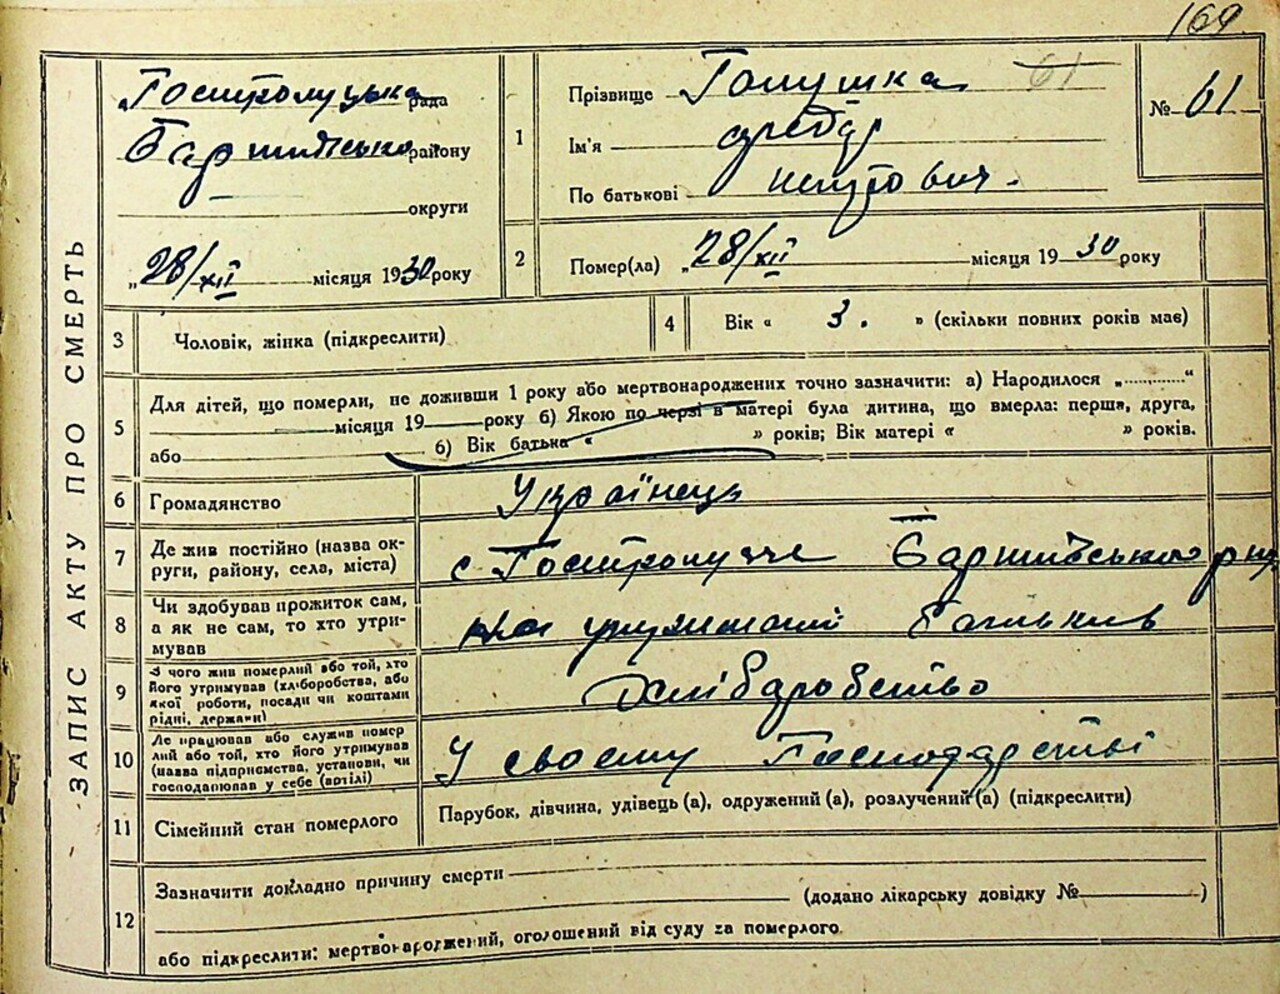 169.
Гостролуцька рада
Баришівсько району
округи
„28/XII місяця 1930 року
1
Прізвище Голушка 61
Ім'я Федір
По батькові
№ 61
2
Помер(ла) „28/XII місяця 19 30 року
ЗАПИС АКТУ ПРО СМЕРТЬ
3 Чоловік, жінка (підкреслити)
4 Вік « 3. » (скільки повних років має)
5 Для дітей, що померли, не доживши 1 року або мертвонароджених точно зазначити: а) Народилося „..........“
місяця 19 року б) Якою по черзі в матері була дитина, що вмерла: перша, друга,
або б) Вік батька « » років; Вік матері « » років.
6 Громадянство Українець
7 Де жив постійно (назва ок-
руги, району, села, міста) с Гостролуччє Баришівського р-ну
8 Чи здобував прожиток сам,
а як не сам, то хто утри-
мував на утриманні батьків
9 З чого жив померлий або той, хто
його утримував (хліборобства, або
якої роботи, посади чи коштами
рідні, держави) Хліборобство
10 Де працював або служив помер
лий або той, хто його утримував
(назва підприємства, установи, чи
господарював у себе (артілі) У своєму Господарстві
11 Сімейний стан померлого Парубок, дівчина, удівець (а), одружений (а), розлучений (а) (підкреслити)
12 Зазначити докладно причину смерти
(додано лікарську довідку № )
або підкреслити: мертвонароджений, оголошений від суду за померлого